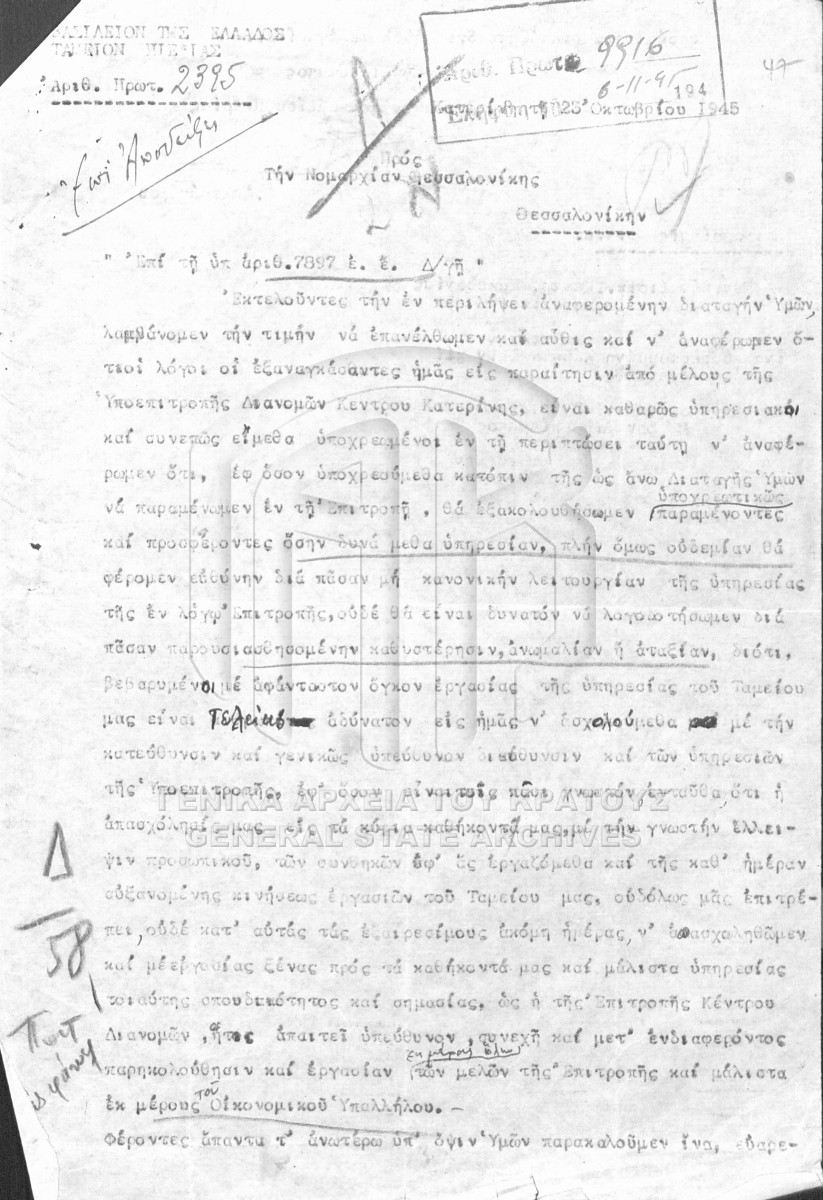 ΒΑΣΙΛΕΙΟΝ ΤΗΣ ΕΛΛΑΔΟΣ
ΤΑΜΕΙΟΝ ΠΙΕΡΙΑΣ
Ἀριθ. Πρωτ. 2395
Ἐπί Ἀποδείξει
Ἀριθ. Πρωτ. 9916
6-11-45 194
Κατερίνη τῇ 25 Ὀκτωβρίου 1945
47
Πρός
Τήν Νομαρχίαν Θεσσαλονίκης
Θεσσαλονίκην
" Ἐπί τῇ ὑπ ἀριθ.7897 ἐ. ἔ. Δ/γῇ "
Ἐκτελοῦντες τήν ἐν περιλήψει ἀναφερομένην διαταγήν Ὑμῶν,
λαμβάνομεν τήν τιμήν νά ἐπανέλθωμεν καί αὖθις καί ν' ἀναφέρωμεν ὅ-
τι οἱ λόγοι οἱ ἐξαναγκάσαντες ἡμᾶς εἰς παραίτησιν ἀπό μέλους τῆς
Ὑποεπιτροπῆς Διανομῶν Κέντρου Κατερίνης, εἶναι καθαρῶς ὑπηρεσιακοί
καί συνεπῶς εἴμεθα ὑποχρεωμένοι ἐν τῇ περιπτώσει ταύτῃ ν' ἀναφέ-
ρωμεν ὅτι, ἐφ ὅσον ὑποχρεούμεθα κατόπιν τῆς ὡς ἄνω Διαταγῆς Ὑμῶν
νά παραμένωμεν ἐν τῇ Ἐπιτροπῇ, θά ἐξακολουθήσωμεν ὑποχρεωτικῶς παραμένοντες
καί προσφέροντες ὅσην δυνά μεθα ὑπηρεσίαν, πλήν ὅμως οὐδεμίαν θά
φέρομεν εὐθύνην διά πᾶσαν μή κανονικήν λειτουργίαν τῆς ὑπηρεσίας
τῆς ἐν λόγῳ Ἐπιτροπῆς, οὐδέ θά εἶναι δυνατόν νά λογοδοτήσωμεν διά
πᾶσαν παρουσιασθησομένην καθυστέρησιν, ἀνωμαλίαν ἤ ἀταξίαν, διότι,
βεβαρυμένοι μέ ἀφάνταστον ὄγκον ἐργασίας τῆς ὑπηρεσίας τοῦ Ταμείου
μας εἶναι τελείως ἀδύνατον εἰς ἡμᾶς ν' ἀσχολούμεθα μέ τήν
κατεύθυνσιν καί γενικῶς ὑπεύθυνον διεύθυνσιν καί τῶν ὑπηρεσιῶν
τῆς Ὑποεπιτροπῆς, ἐφ' ὅσον εἶναι τοῖς πᾶσι γνωστόν ἐνταῦθα ὅτι ἡ
ΓΕΝΙΚΑ ΑΡΧΕΙΑ ΤΟΥ ΚΡΑΤΟΥΣ
ἀπασχόλησί μας εἰς τά κύρια καθήκοντά μας, μέ τήν γνωστήν ἔλλει-
GENERAL STATE ARCHIVES
ψιν προσωπικοῦ, τῶν συνθηκῶν ὑφ' ἅς ἐργαζόμεθα καί τῆς καθ' ἡμέραν
αὐξανομένης κινήσεως ἐργασιῶν τοῦ Ταμείου μας, οὐδόλως μᾶς ἐπιτρέ-
πει, οὐδέ κατ' αὐτάς τάς ἐξαιρεσίμους ἀκόμη ἡμέρας, ν' ἀπασχοληθῶμεν
καί μέ ἐργασίας ξένας πρός τά καθήκοντά μας καί μάλιστα ὑπηρεσίας
τοιαύτης σπουδαιότητος καί σημασίας, ὡς ἡ τῆς Ἐπιτροπῆς Κέντρου
Διανομῶν, ἥτις ἀπαιτεῖ ὑπεύθυνον, συνεχῆ καί μετ' ἐνδιαφερόντος
παρηκολούθησιν καί ἐργασίαν ἐκ μέρους ὅλων τῶν μελῶν τῆς Ἐπιτροπῆς καί μάλιστα
ἐκ μέρους τοῦ Οἰκονομικοῦ Ὑπαλλήλου.-
Φέροντες ἅπαντα τ' ἀνωτέρω ὑπ' ὄψιν Ὑμῶν παρακαλοῦμεν ἵνα, εὐαρε-
Δ
58